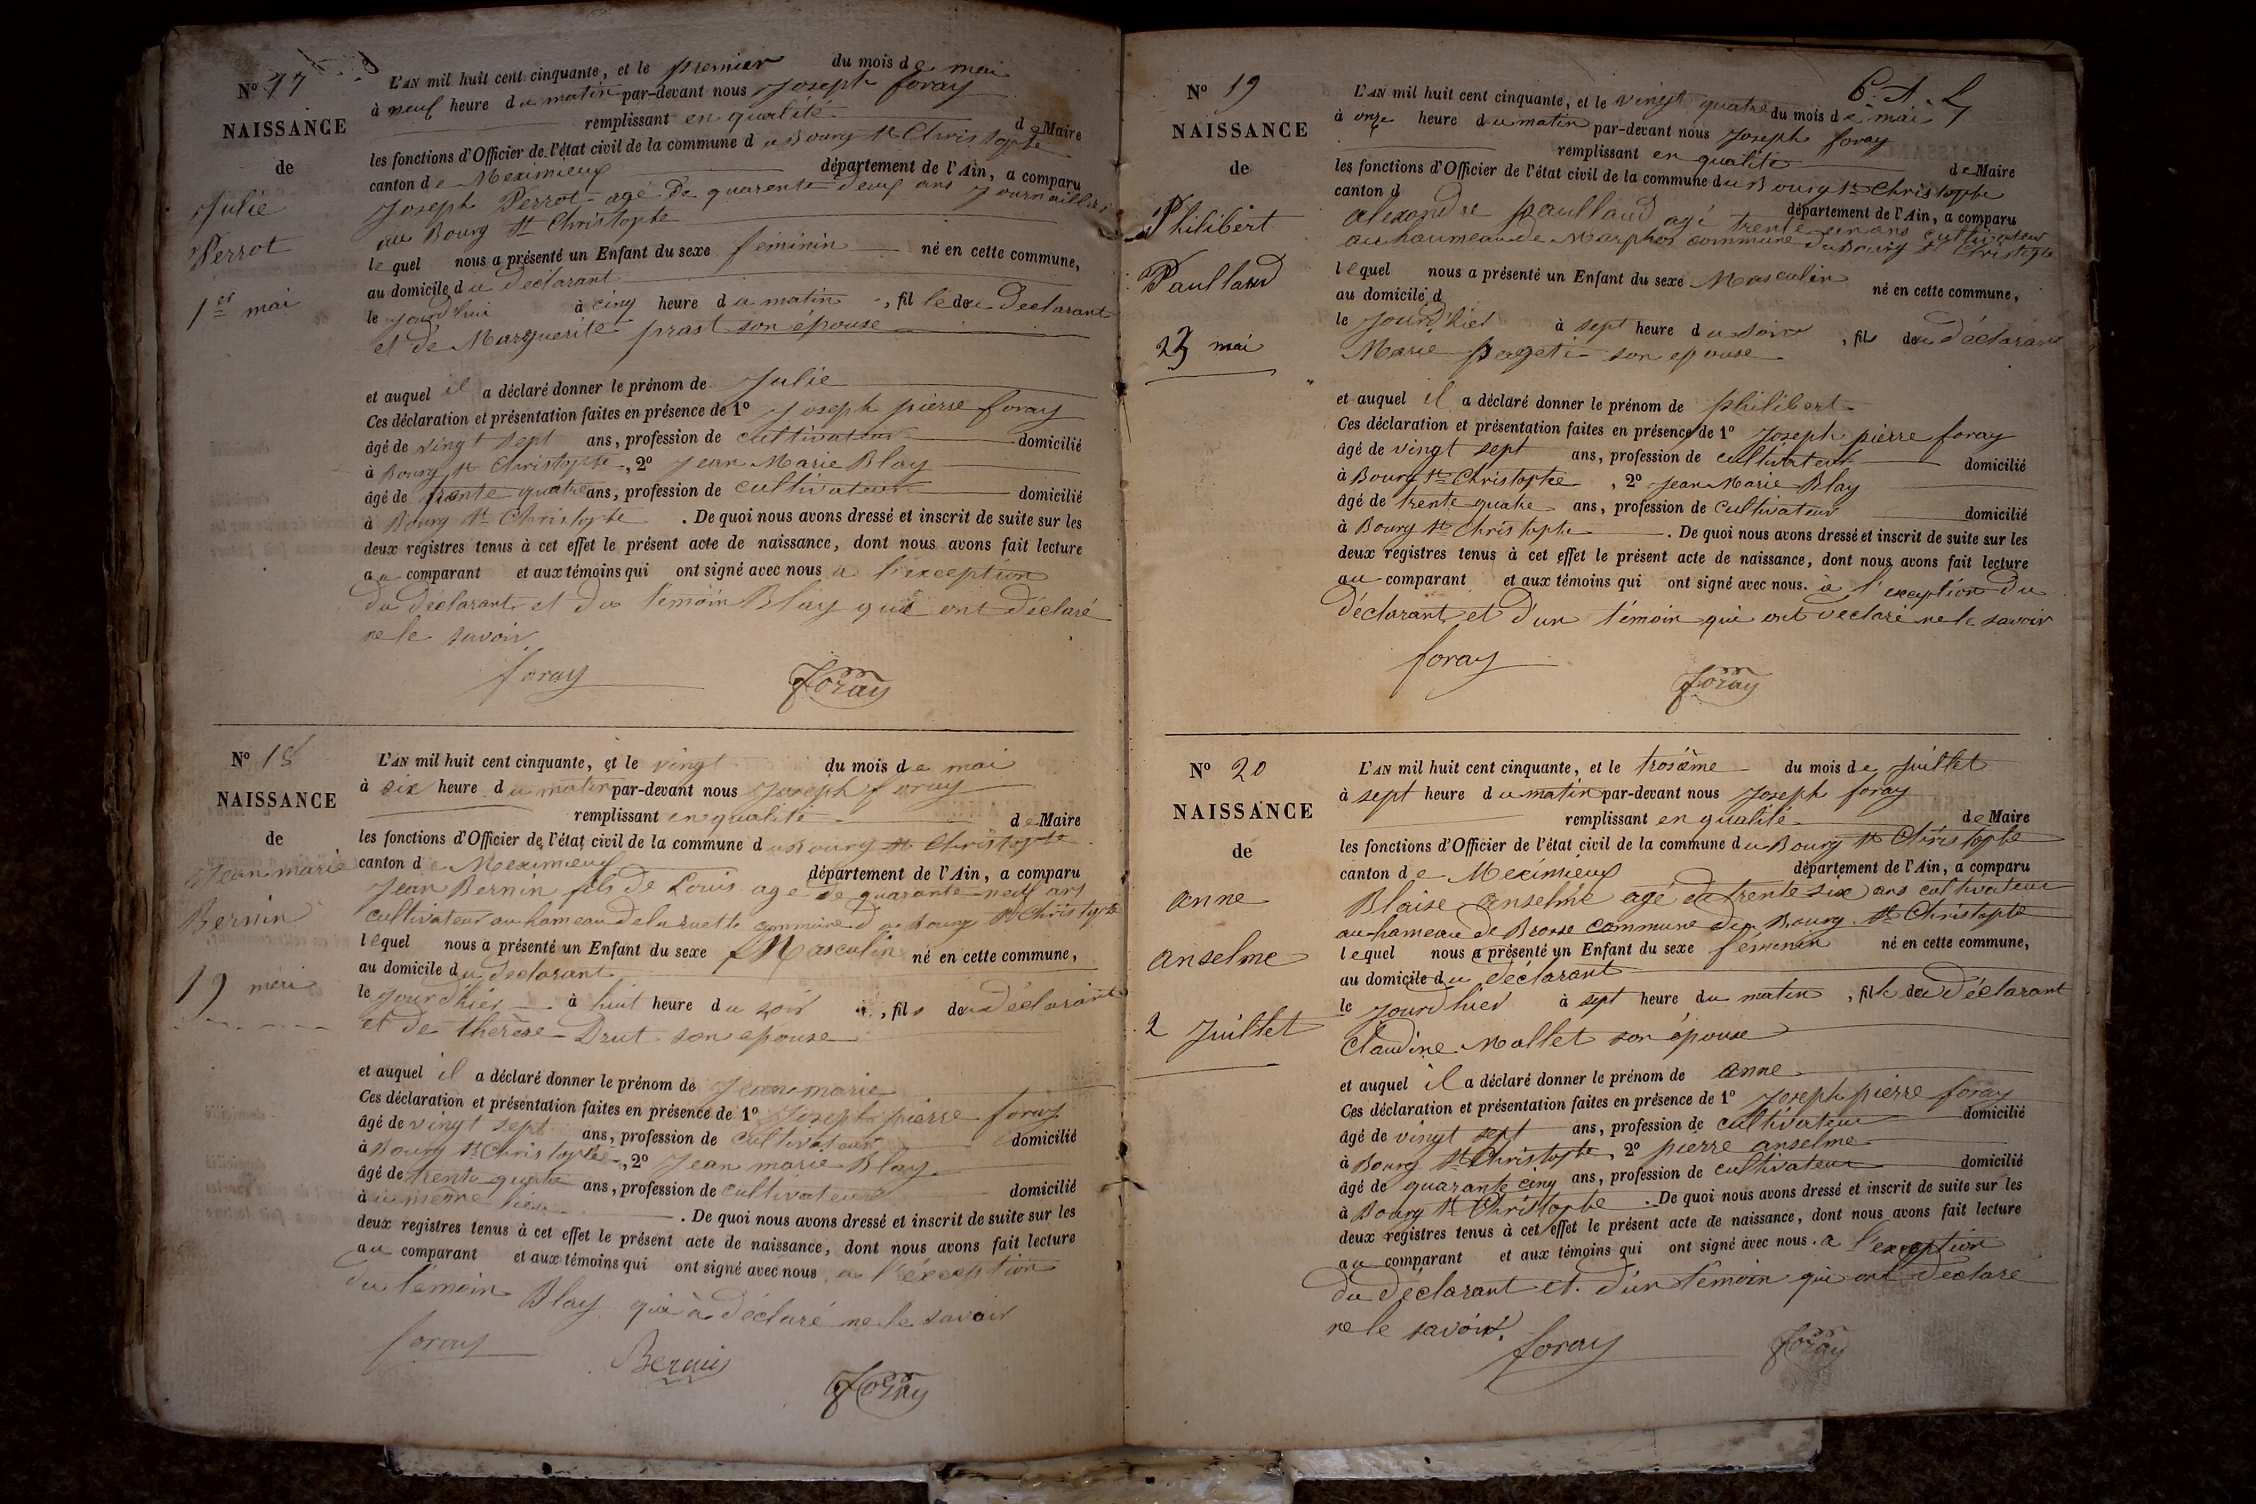 N° 17
NAISSANCE
de
Julie
Perrot
1er mai
L'AN mil huit cent cinquante, et le premier du mois de mai
à neuf heure du matin par-devant nous Joseph foray
remplissant en qualité de Maire
les fonctions d'Officier de l'état civil de la commune du Bourg St Christophe
canton de Meximieux département de l'Ain, a comparu
Joseph Perrot agé de quarente deux ans Journaillier
au Bourg St Christophe
lequel nous a présenté un Enfant du sexe féminin né en cette commune,
au domicile du déclarant
le jourd'hui à cinq heure du matin, fille du déclarant
et de Marguerite prast son épouse
et auquel il a déclaré donner le prénom de Julie
Ces déclaration et présentation faites en présence de 1° Joseph pierre foray
âgé de vingt sept ans, profession de cultivateur domicilié
à Bourg St Christophe, 2° Jean Marie Blay
âgé de trente quatre ans, profession de cultivateur domicilié
à Bourg St Christophe. De quoi nous avons dressé et inscrit de suite sur les
deux registres tenus à cet effet le présent acte de naissance, dont nous avons fait lecture
au comparant et aux témoins qui ont signé avec nous a l'exception
du déclarant et du témoin Blay qui ont déclaré
ne le savoir
foray Foray
N° 18
NAISSANCE
de
Jean marie
Bernin
19 mai
L'AN mil huit cent cinquante, et le vingt du mois de mai
à six heure du matin par-devant nous Joseph foray
remplissant en qualité de Maire
les fonctions d'Officier de l'état civil de la commune du Bourg St Christophe
canton de Meximieux département de l'Ain, a comparu
Jean Bernin fils de Louis agé de quarante neuf ans
cultivateur au hameau de la ruette commune du Bourg St Christophe
lequel nous a présenté un Enfant du sexe Masculin né en cette commune,
au domicile du déclarant
le jourd'hier à huit heure du soir, fils du déclarant
et de thérèse Drut son epouse
et auquel il a déclaré donner le prénom de Jean marie
Ces déclaration et présentation faites en présence de 1° Joseph pierre foray
âgé de vingt sept ans, profession de cultivateur domicilié
à Bourg St Christophe, 2° Jean marie Blay
âgé de trente quatre ans, profession de cultivateur domicilié
à u même lieu. De quoi nous avons dressé et inscrit de suite sur les
deux registres tenus à cet effet le présent acte de naissance, dont nous avons fait lecture
au comparant et aux témoins qui ont signé avec nous a l'exception
du témoin Blay qui à déclaré ne le savoir
foray Bernin Foray
C. A. L
N° 19
NAISSANCE
de
Philibert
Paulland
23 mai
L'AN mil huit cent cinquante, et le vingt quatre du mois de mai
à onze heure du matin par-devant nous Joseph foray
remplissant en qualité de Maire
les fonctions d'Officier de l'état civil de la commune du Bourg St Christophe
canton d département de l'Ain, a comparu
alexandre paulland agé trente un ans cultivateur
au haumeau de Marphoz commune du Bourg St Christophe
lequel nous a présenté un Enfant du sexe Masculin né en cette commune,
au domicile d
le jourd'hier à sept heure du soir, fils du déclarant
Marie pageti son epouse
et auquel il a déclaré donner le prénom de philibert
Ces déclaration et présentation faites en présence de 1° Joseph pierre foray
âgé de vingt sept ans, profession de cultivateur domicilié
à Bourg St Christophe, 2° Jean Marie Blay
âgé de trente quatre ans, profession de cultivateur domicilié
à Bourg St Christophe. De quoi nous avons dressé et inscrit de suite sur les
deux registres tenus à cet effet le présent acte de naissance, dont nous avons fait lecture
au comparant et aux témoins qui ont signé avec nous. à l'exception du
déclarant et d'un témoin qui ont declaré ne le savoir
foray Foray
N° 20
NAISSANCE
de
anne
anselme
2 Juillet
L'AN mil huit cent cinquante, et le trosième du mois de Juillet
à sept heure du matin par-devant nous Joseph foray
remplissant en qualité de Maire
les fonctions d'Officier de l'état civil de la commune du Bourg St Christophe
canton de Meximieux département de l'Ain, a comparu
Blaise anselme agé de trente six ans cultivateur
au hameau de Brosse commune du Bourg St Christophe
lequel nous a présenté un Enfant du sexe féminin né en cette commune,
au domicile du déclarant
le jourd'hier à sept heure du matin, fille du déclarant
Claudine Mollet son épouse
et auquel il a déclaré donner le prénom de anne
Ces déclaration et présentation faites en présence de 1° Joseph pierre foray
âgé de vingt sept ans, profession de cultivateur domicilié
à Bourg St Christophe, 2° pierre anselme
âgé de quarante cinq ans, profession de cultivateur domicilié
à Bourg St Christophe. De quoi nous avons dressé et inscrit de suite sur les
deux registres tenus à cet effet le présent acte de naissance, dont nous avons fait lecture
au comparant et aux témoins qui ont signé avec nous. a l'exception
du déclarant et d'un témoin qui ont declaré
ne le savoir.
foray Foray